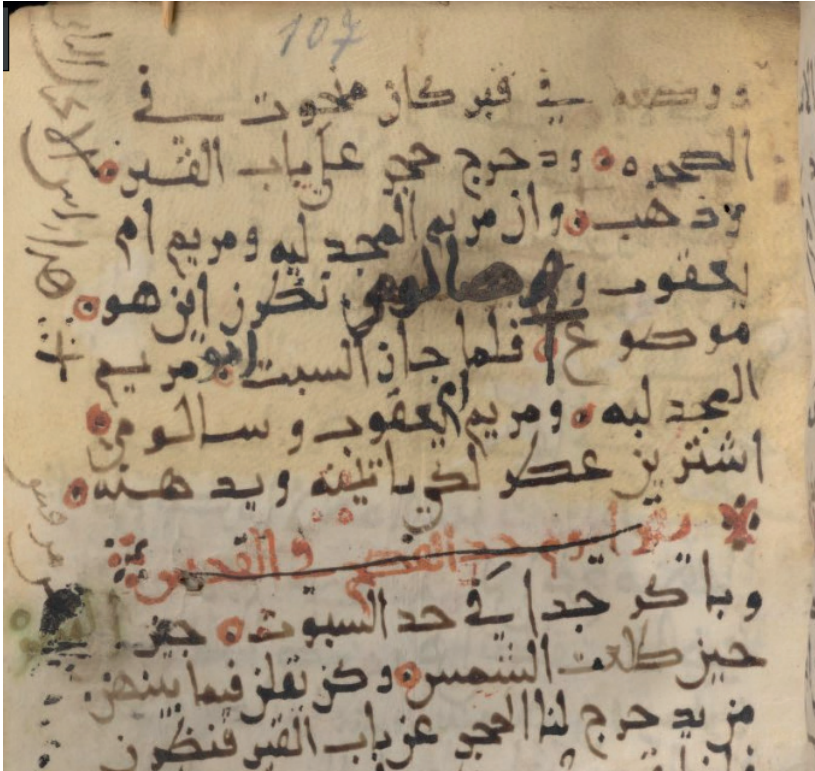 107
ووضعه في قبر كان منحوت في
الصخره ودحرج حجر علي باب القبر
وذهب وان مريم المجدليه ومريم ام
يعقوب و صالومي نظرن اين هو
موضوع فلما جاز السبت مريم
المجدليه ومريم ام يعقوب وسالومي
اشترين عطر لكي ياتينه ويدهنه
يقرا يوم حد الفصح في القدس
وباكر جدا في حد السبوت جين
حين طلعت الشمس وكن يقلن فيما بينهن
من يدحرج لنا الحجر عن باب القبر فنظرن